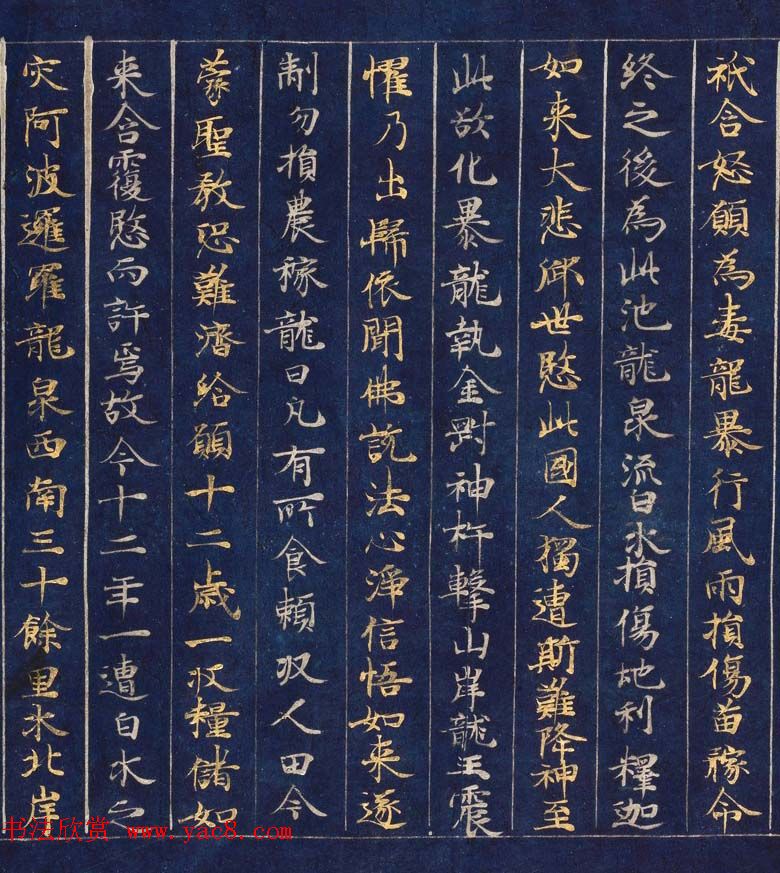 祇含怒願為毒龍暴行風雨損傷苗稼命
終之後為此池龍泉流白水損傷地利釋迦
如来大悲御世愍此國人獨遭斯難降神至
此欲化暴龍執金剛神杵擊山岸龍王震
懼乃出歸依聞佛說法心淨信悟如来遂
制勿損農稼龍曰凡有所食賴収人田今
蒙聖教恐難濟給願十二歳一収糧儲如
来含覆愍而許焉故今十二年一遭白水之
灾阿波邏羅龍泉西南三十餘里水北岸
书法欣赏 www.yac8.com